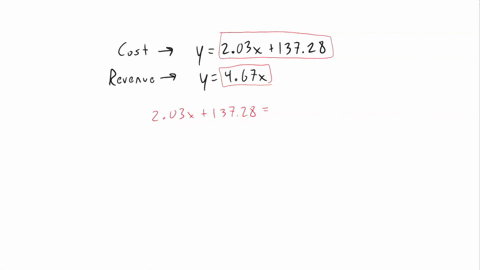 Cost → y = 2.03x + 137.28
Revenue → y = 4.67x
2.03x + 137.28 =